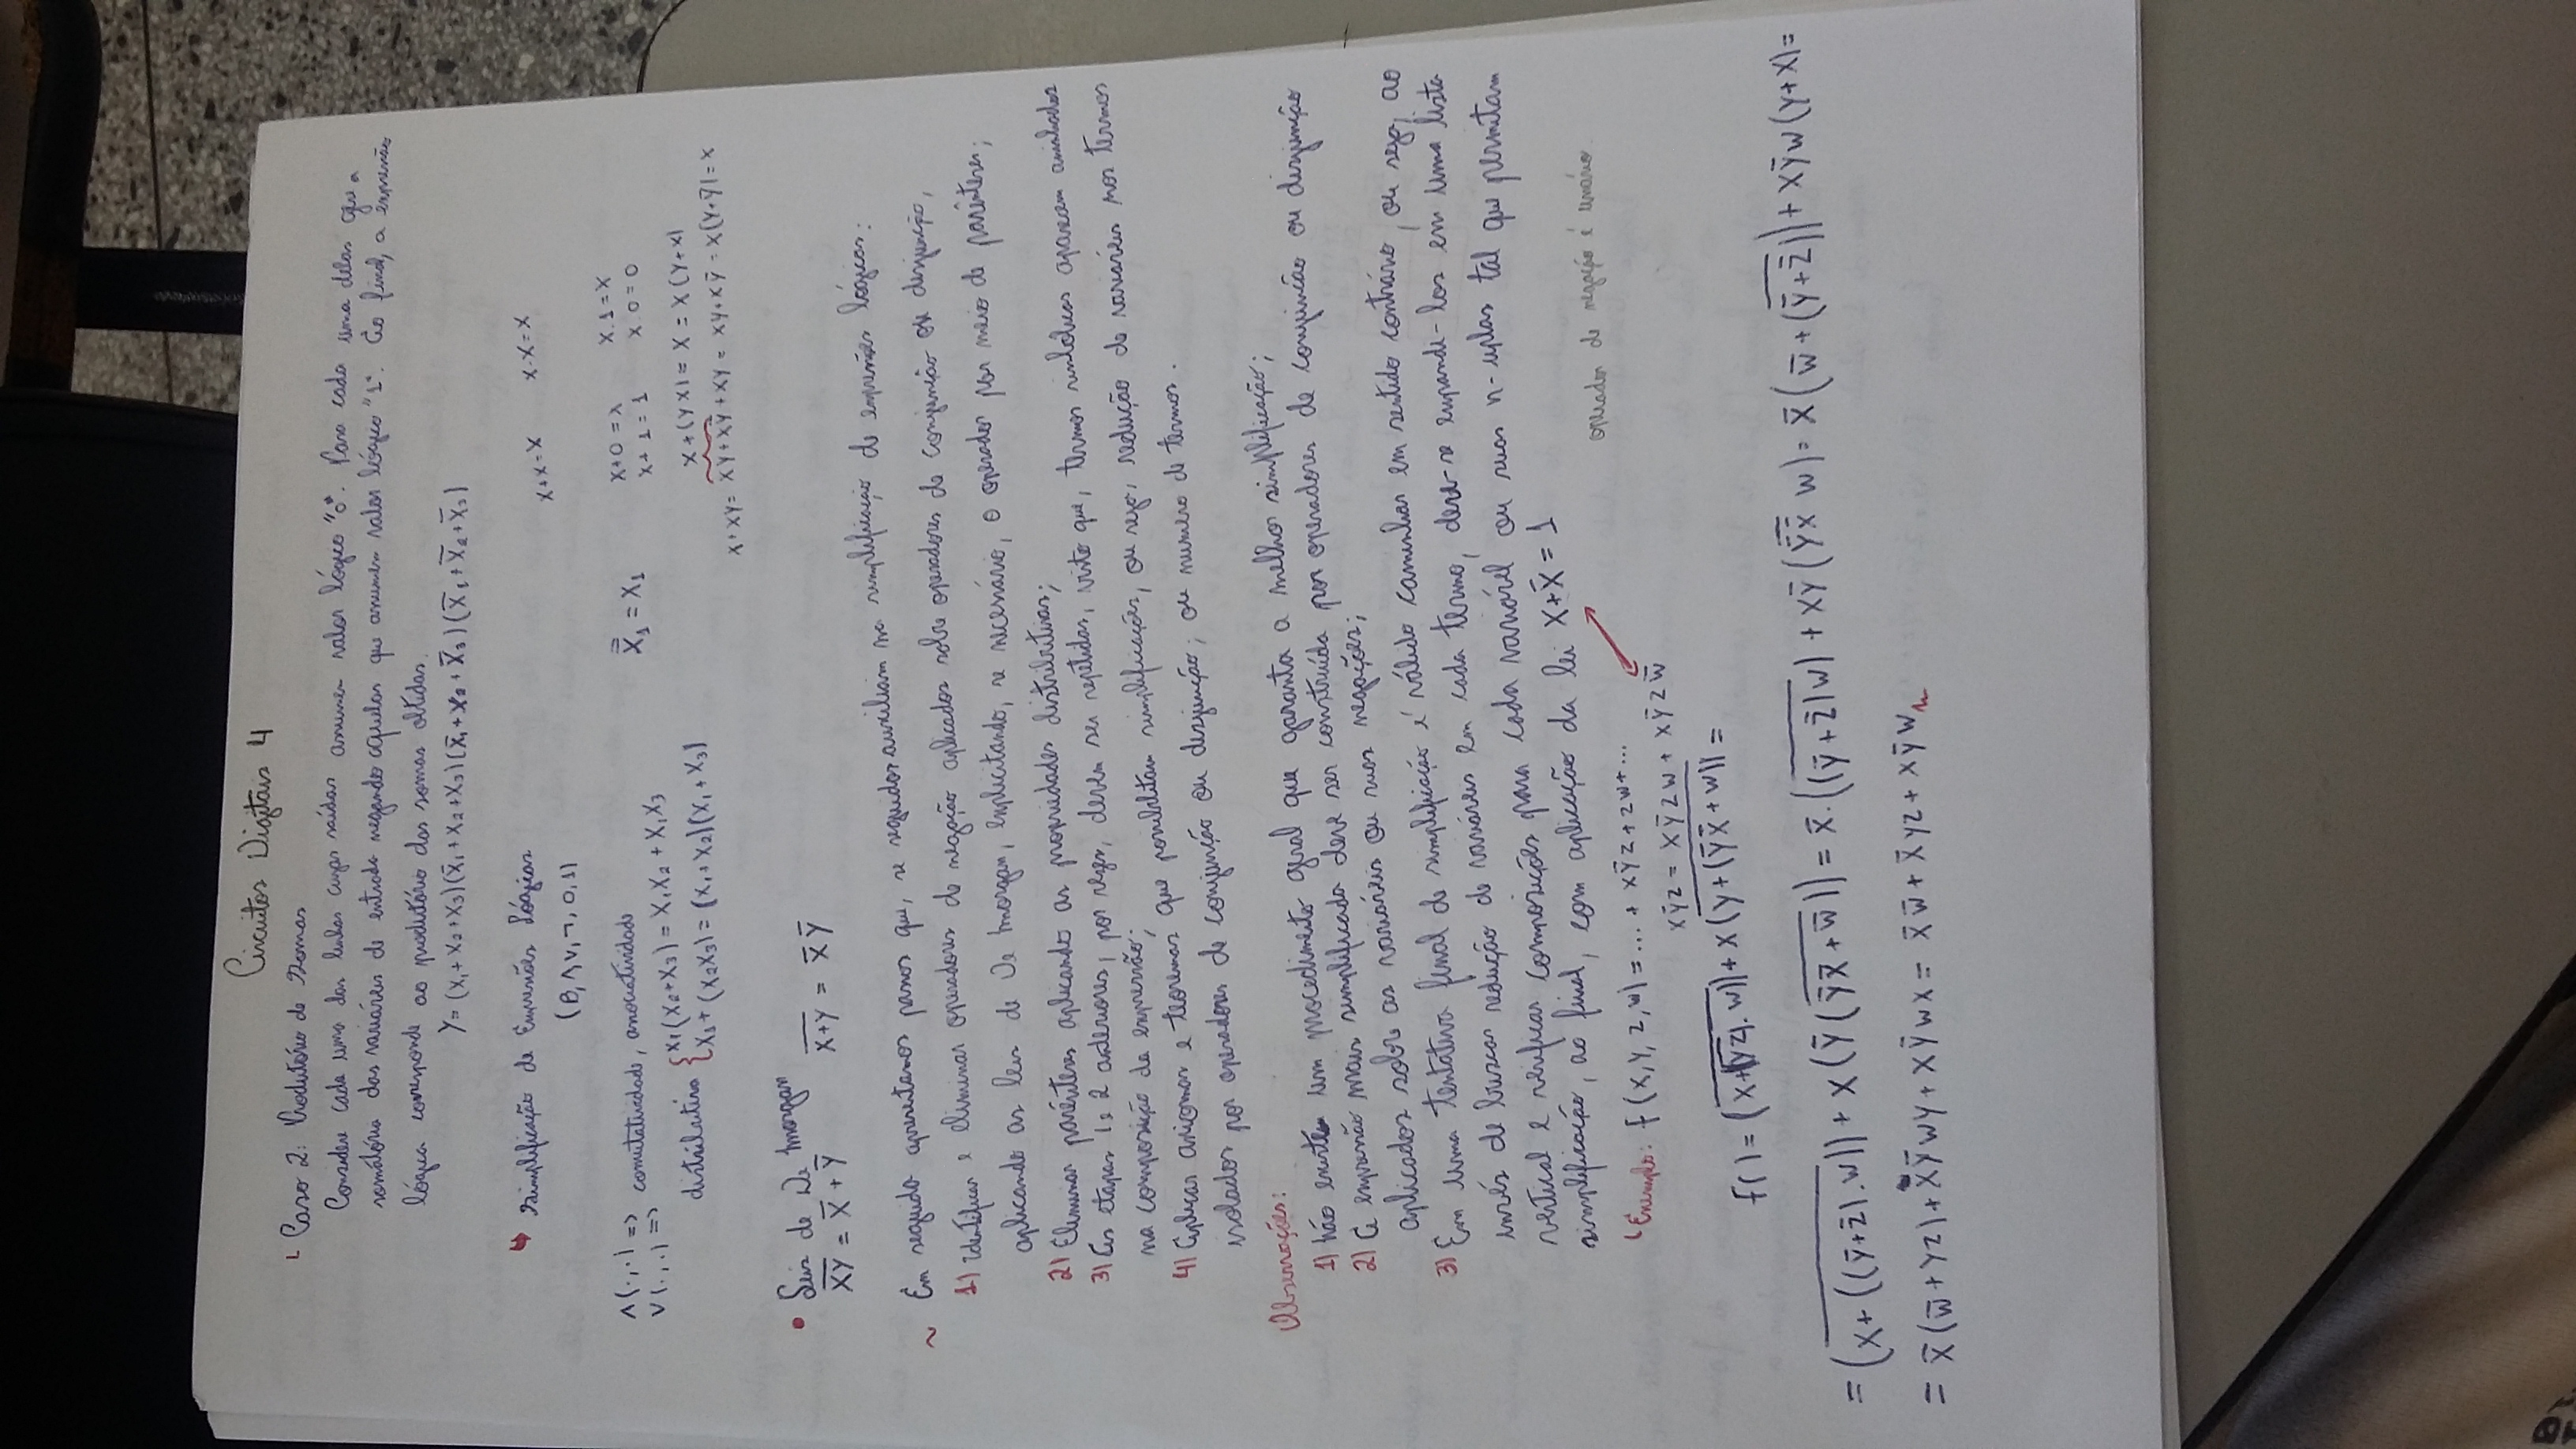 Circuitos Digitais 4
Caso 2: Produtório de Somas
Considere cada uma das linhas cujas saídas assumem valor lógico "0". Para cada uma delas gere a
somatória das variáveis de entrada negando aquelas que assumem valor lógico "1". Ao final, a expressão
lógica corresponde ao produtório das somas obtidas.
Y = (X₁ + X₂ + X₃)(X̄₁ + X₂ + X₃)(X̄₁ + X₂ + X̄₃)(X̄₁ + X̄₂ + X̄₃)
Simplificação de Expressões Lógicas
(B, ∧, ∨, ¬, 0, 1)
X+X=X X·X=X
∧(·,·) => comutatividade, associatividade
∨(·,·) =>
distributiva { X₁(X₂+X₃) = X₁X₂ + X₁X₃
X₁ + (X₂X₃) = (X₁+X₂)(X₁+X₃)
X̿₁ = X₁
X+0 = X X·1 = X
X+1 = 1 X·0 = 0
X+(YX) = X = X(Y+X)
X+XY = XY+XȲ+XY = XY+XȲ = X(Y+Ȳ) = X
• Leis de De Morgan
\overline{XY} = X̄ + Ȳ \overline{X+Y} = X̄ Ȳ
~ Em seguida apresentamos passos que, se seguidos auxiliam na simplificação de expressões lógicas:
1) Identificar e eliminar operadores de negação aplicados sobre operadores de conjunção ou desjunção,
aplicando as leis de De Morgan, explicitando, se necessário, o operador por meio de parênteses;
2) Eliminar parênteses aplicando as propriedades distributivas;
3) As etapas 1 e 2 anteriores, por vezes, devem ser repetidas, visto que, termos simbólicos aparecem aninhados
na composição da expressão;
4) Aplicar axiomas e teoremas que possibilitam simplificações, ou seja, redução de variáveis nos termos
isolados por operadores de conjunção ou desjunção; ou numero de termos.
Observações:
1) Não existe um procedimento geral que garanta a melhor simplificação;
2) A expressão mais simplificada deve ser construída por operadores de conjunção ou desjunção
aplicados sobre as variáveis ou suas negações;
3) Em uma tentativa final de simplificação é válido caminhar em sentido contrário, ou seja, ao
invés de buscar redução de variáveis em cada termo, deve-se expandi-los em uma lista
vertical e verificar composições para cada variável ou suas n-uplas tal que permitam
simplificação, ao final, com aplicação da lei X+X̄ = 1
operador de negação é unário
Exemplo: f(X,Y,Z,W) = ... + XȲZ + ZW + ...
XȲZ = XȲZW + XȲZW̄
f() = (\overline{X+(\overline{YZ}).W)}) + X(\overline{Y+(ȲX̄ + W)}) =
= (\overline{X+((Ȳ+Z̄).W)}) + X(Ȳ(\overline{ȲX̄ + W̄})) = X̄.(\overline{(Ȳ+Z̄)W}) + XȲ(\overline{ȲX̄} W) = X̄(W̄ + (\overline{Ȳ+Z̄})) + XȲW(Y+X) =
= X̄(W̄+YZ) + XȲWY + XȲWX = X̄W̄ + X̄YZ + XȲW